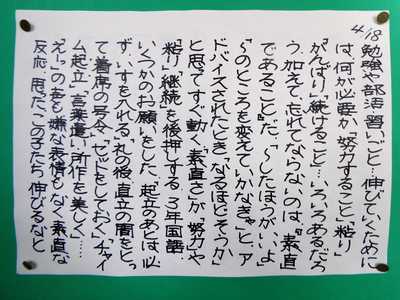 4/18
勉強や部活、習いごと…伸びていくために
は、何が必要か「努力すること」「粘り」
「がんばり」「続けること」…いろいろあるだろ
う。加えて、忘れてならないのは、“素直
であること”だ。「～したほうがいいよ」
「～のところを変えていかなきゃ」と、ア
ドバイスされたとき、「なるほどそうか」
と思ってすぐ動く“素直さ”が「努力」や
「粘り」「継続」を後押しする。3年国語
いくつかのお願いをした。「起立のあとは必
ず、いすを入れる」「礼の後、直立の間をとっ
て、着席の号令」「セットをしておく」「チャイ
ム起立」「言葉遣い、所作を美しく」……
「えーっ」の声も嫌な表情もなく素直な
反応。思った、この子たち、伸びるなと